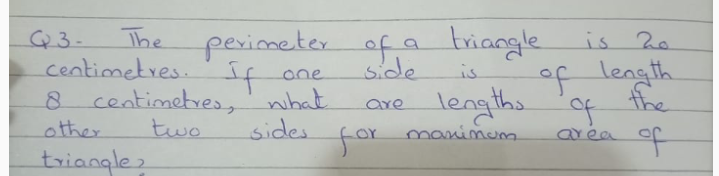 Q3. The perimeter of a triangle is 20
centimetres. If one side is of length
8 centimetres, what are lengths of the
other two sides for maximum area of
triangle?